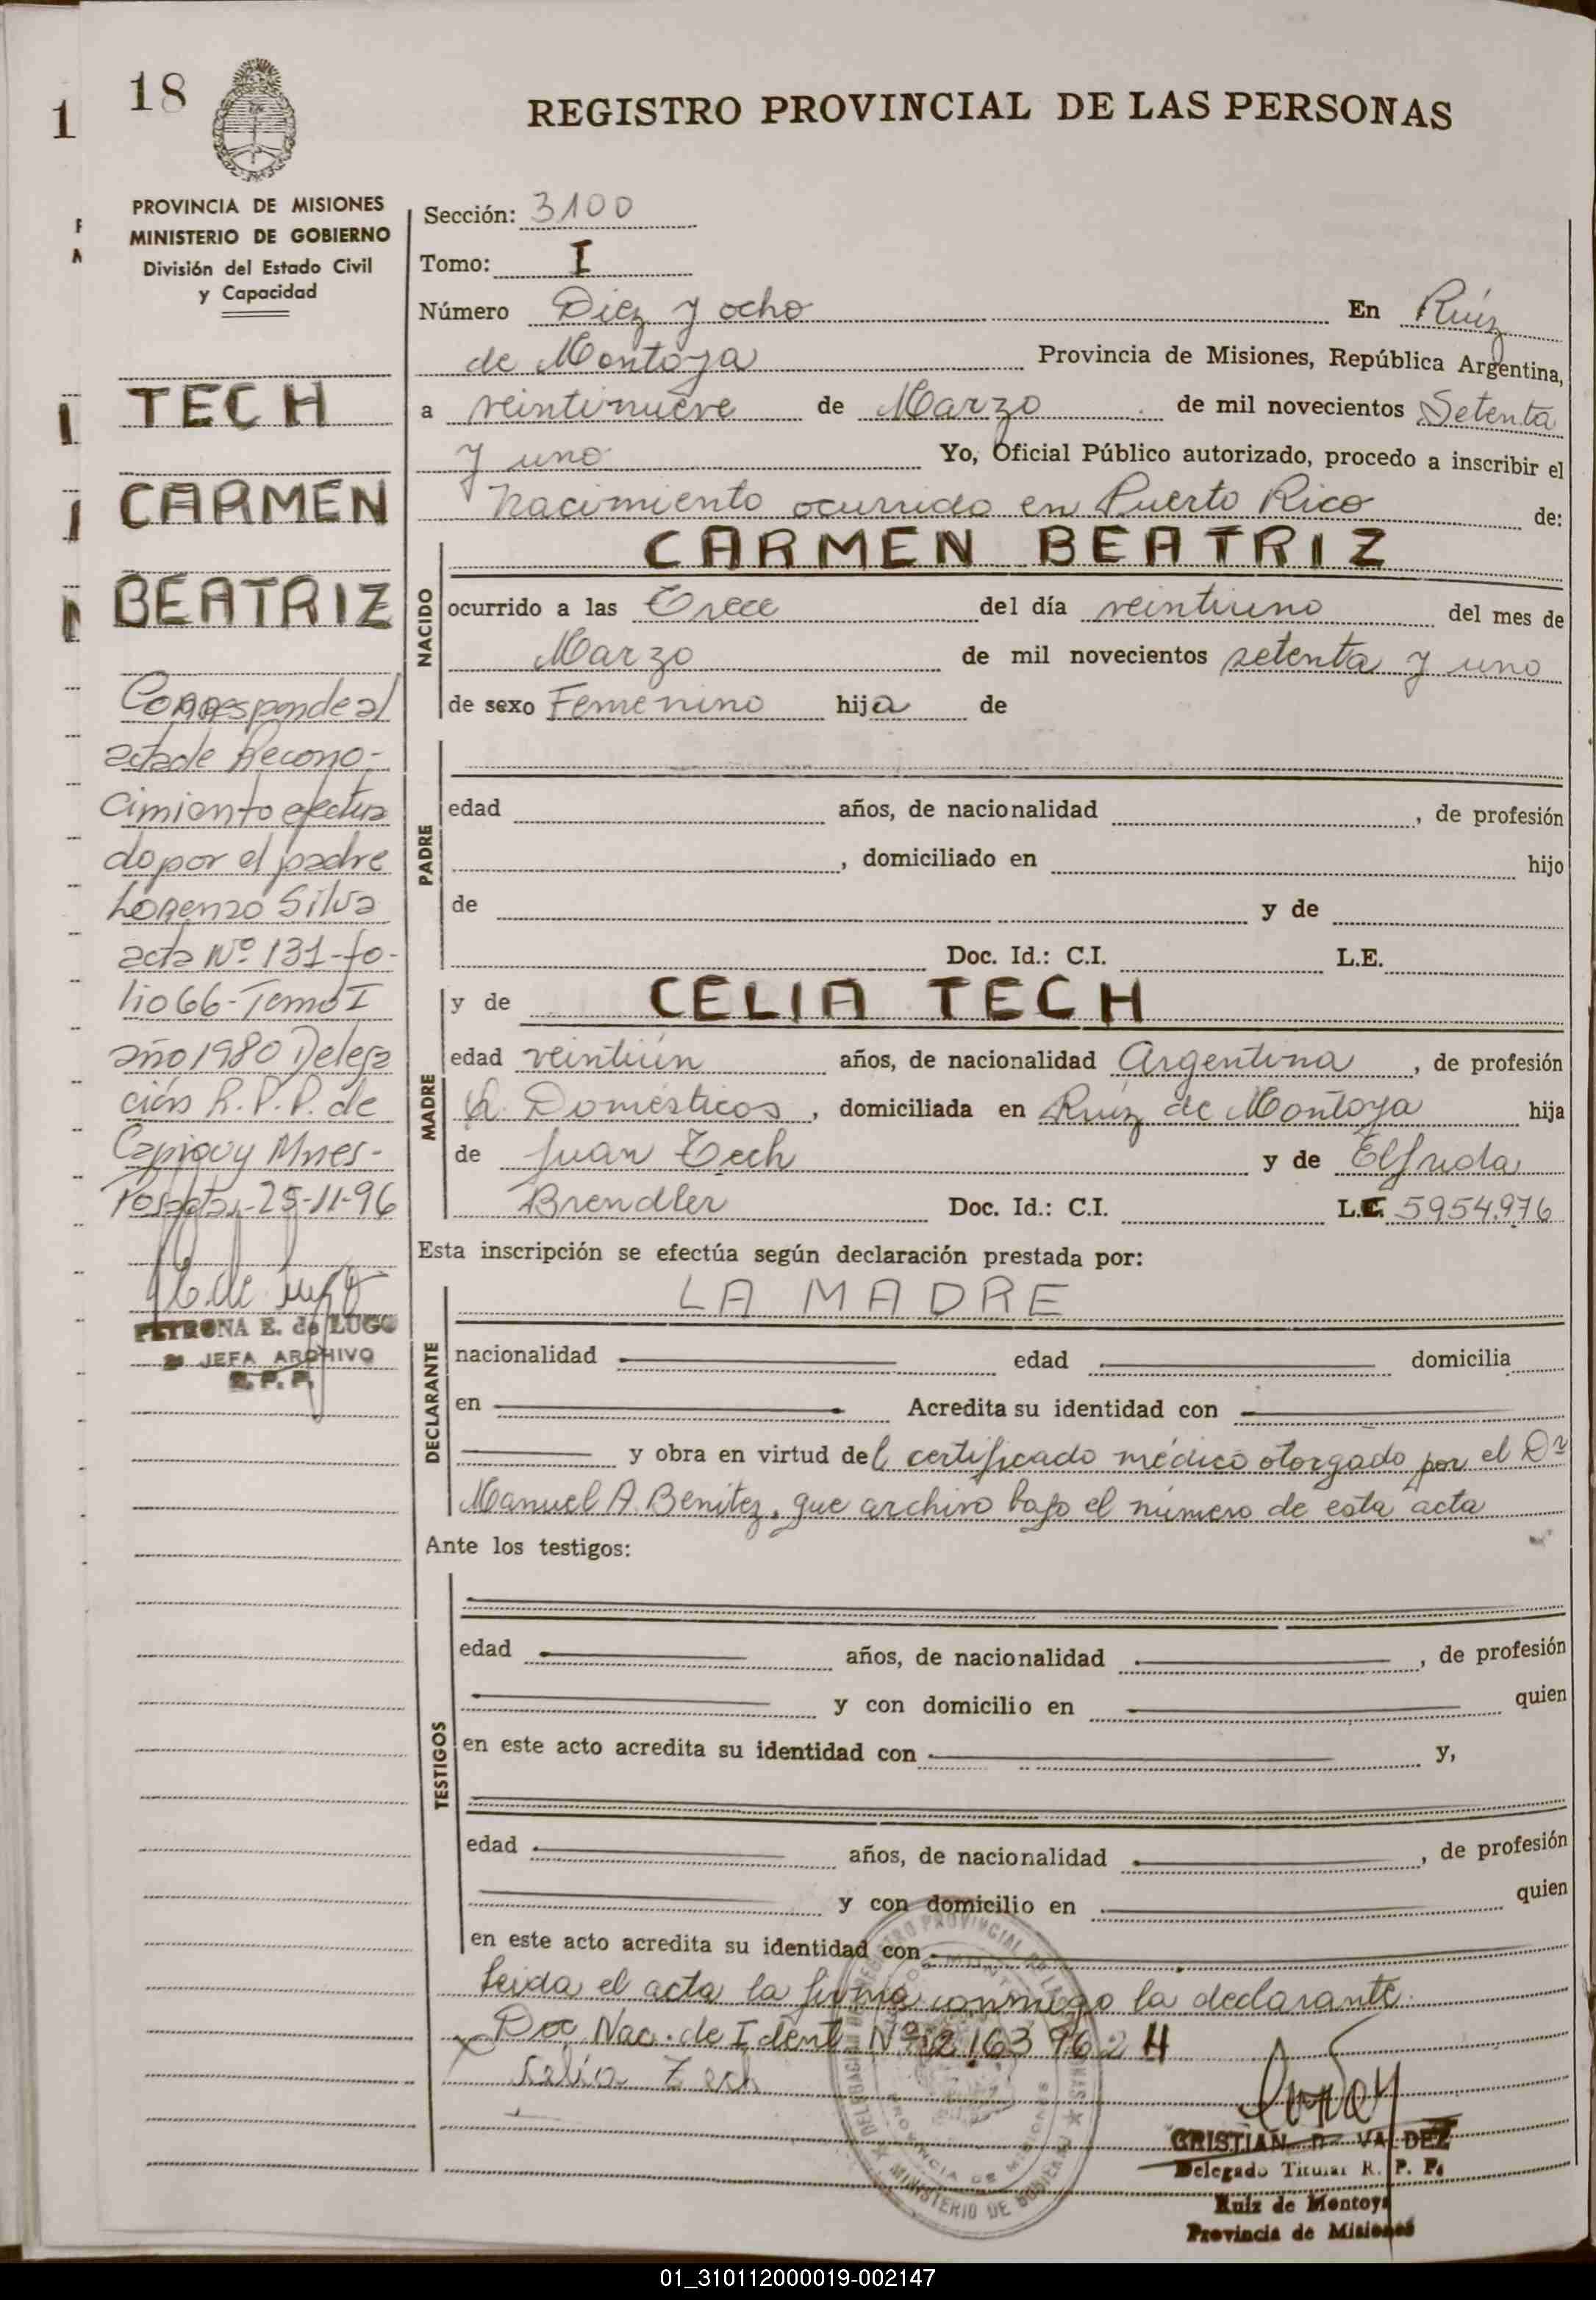 18
REGISTRO PROVINCIAL DE LAS PERSONAS
1
PROVINCIA DE MISIONES
MINISTERIO DE GOBIERNO
División del Estado Civil
y Capacidad
TECH
CARMEN
BEATRIZ
Corresponde al
acta de Recono-
cimiento efectua
do por el padre
Lorenzo Silva
acta Nº 131-fo-
lio 66-Tomo I
año 1980 Delega
ción R.P.P. de
Capiovy Mnes-
Posadas,-25-11-96
PETRONA E. de LUGO
JEFA ARCHIVO
R. P. P.
Sección: 3100
Tomo: I
Número Diez y ocho En Ruiz
de Montoya Provincia de Misiones, República Argentina,
a veintinueve de Marzo de mil novecientos Setenta
y uno Yo, Oficial Público autorizado, procedo a inscribir el
nacimiento ocurrido en Puerto Rico de:
NACIDO
CARMEN BEATRIZ
ocurrido a las Trece del día veintiuno del mes de
Marzo de mil novecientos setenta y uno
de sexo Femenino hija de
PADRE
edad años, de nacionalidad , de profesión
, domiciliado en hijo
de y de
Doc. Id.: C.I. L.E.
MADRE
y de CELIA TECH
edad veintiún años, de nacionalidad Argentina, de profesión
Q. Domésticos, domiciliada en Ruiz de Montoya hija
de Juan Tech y de Elfrida
Brendler Doc. Id.: C.I. L.C. 5954.976
Esta inscripción se efectúa según declaración prestada por:
DECLARANTE
LA MADRE
nacionalidad edad domicilia
en Acredita su identidad con
y obra en virtud del certificado médico otorgado por el Dr
Manuel A. Benitez, que archivo bajo el número de esta acta
Ante los testigos:
TESTIGOS
edad años, de nacionalidad , de profesión
y con domicilio en quien
en este acto acredita su identidad con y,
edad años, de nacionalidad , de profesión
y con domicilio en quien
en este acto acredita su identidad con
Leida el acta la firma conmigo la declarante.
Doc. Nac. de Ident. Nº 2.163 962 H
Celia Tech
CRISTIAN D. VALDEZ
Delegado Titular R. P. P.
Ruiz de Montoya
Provincia de Misiones
MINISTERIO DE GOBIERNO
PROVINCIA DE MISIONES
01_310112000019-002147